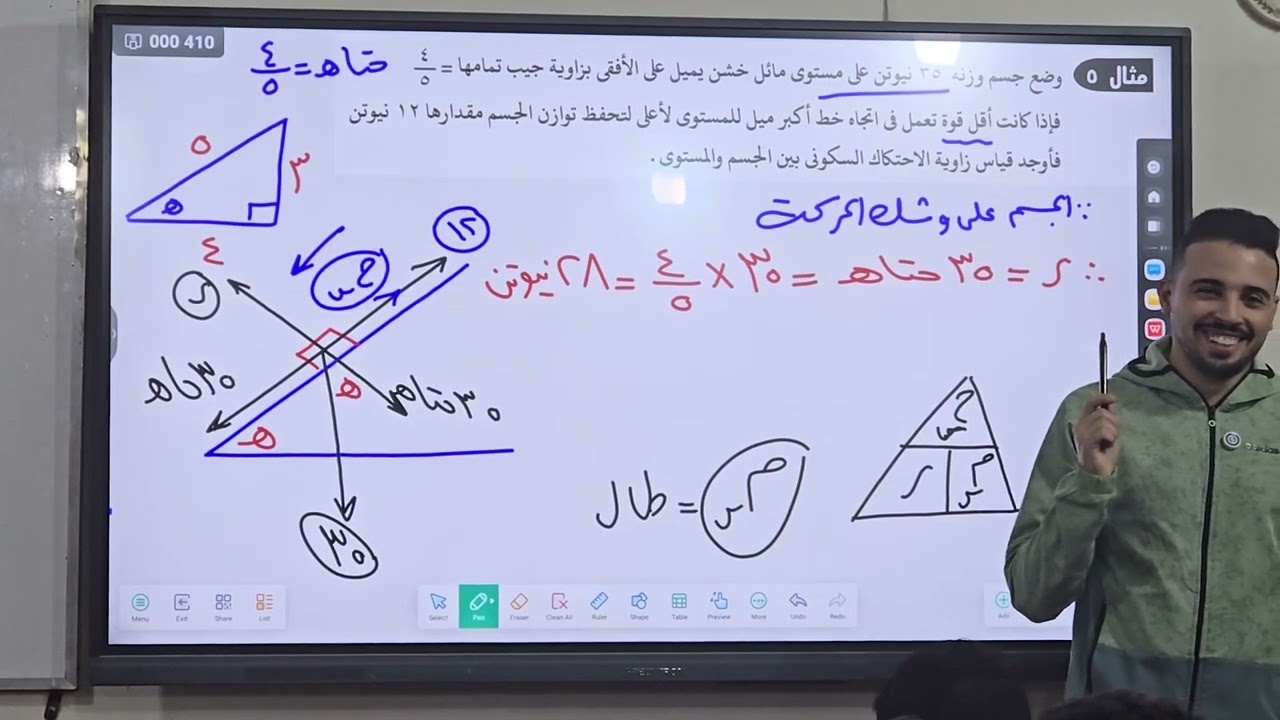 000 410
مثال ٥
وضع جسم وزنه ٣٥ نيوتن على مستوى مائل خشن يميل على الأفقى بزاوية جيب تمامها = ٤/٥
فإذا كانت أقل قوة تعمل فى اتجاه خط أكبر ميل للمستوى لأعلى لتحفظ توازن الجسم مقدارها ١٢ نيوتن
فأوجد قياس زاوية الاحتكاك السكونى بين الجسم والمستوى .
حتاهـ = ٤/٥
٥
٣
هـ
٤
∵ الجسم على وشك الحركة
∴ ر = ٣٥ حتاهـ = ٣٥ × ٤/٥ = ٢٨ نيوتن
١٢
ح س
ر
٣٥ حاهـ
٣٥ حتاهـ
هـ
هـ
٣٥
م س = طا ل
ح س
ر
م س
Menu
Exit
Share
List
Select
Pen
Eraser
Clean All
Ruler
Shape
Table
Preview
More
Undo
Redo
Add